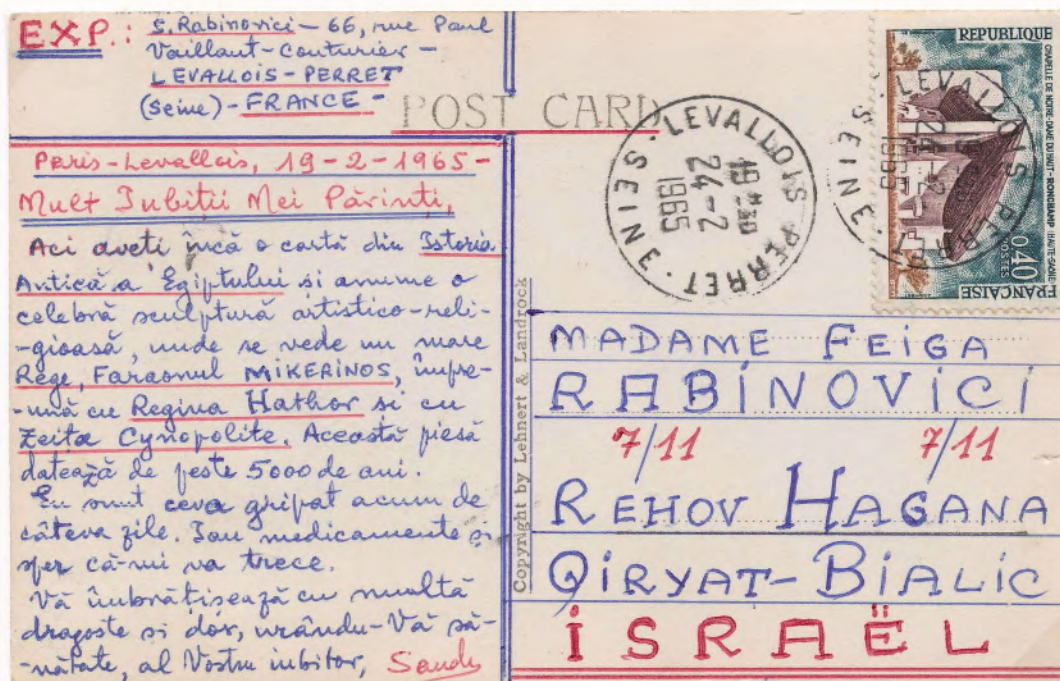 EXP.: S. Rabinovici - 66, rue Paul
Vaillant-Couturier -
LEVALLOIS-PERRET
(Seine) - FRANCE -
POST CARD
Paris-Levallois, 19-2-1965-
Mult Iubiții Mei Părinți,
Aci aveți încă o cartă din Istoria
Antică a Egiptului si anume o
celebră sculptură artistico-reli-
-gioasă, unde se vede un mare
Rege, Faraonul MIKERINOS, împre-
-ună cu Regina Hathor si cu
Zeita Cynopolite. Această piesă
datează de peste 5000 de ani.
Eu sunt ceva gripat acum de
câteva zile. Iau medicamente si
sper că-mi va trece.
Vă îmbrătisează cu multă
dragoste si dor, urându-Vă să-
-nătate, al Vostru iubitor, Sandu
Copyright by Lehnert & Landrock
LEVALLOIS PERRET
19H30
24-2
1965
SEINE
REPUBLIQUE
FRANÇAISE
0,40
POSTES
CHAPELLE DE NOTRE-DAME DU HAUT-RONCHAMP (HAUTE-SAONE)
LEVALLOIS PERRET
24-2
1965
SEINE
MADAME FEIGA
RABINOVICI
7/11 7/11
REHOV HAGANA
QIRYAT-BIALIC
ISRAËL